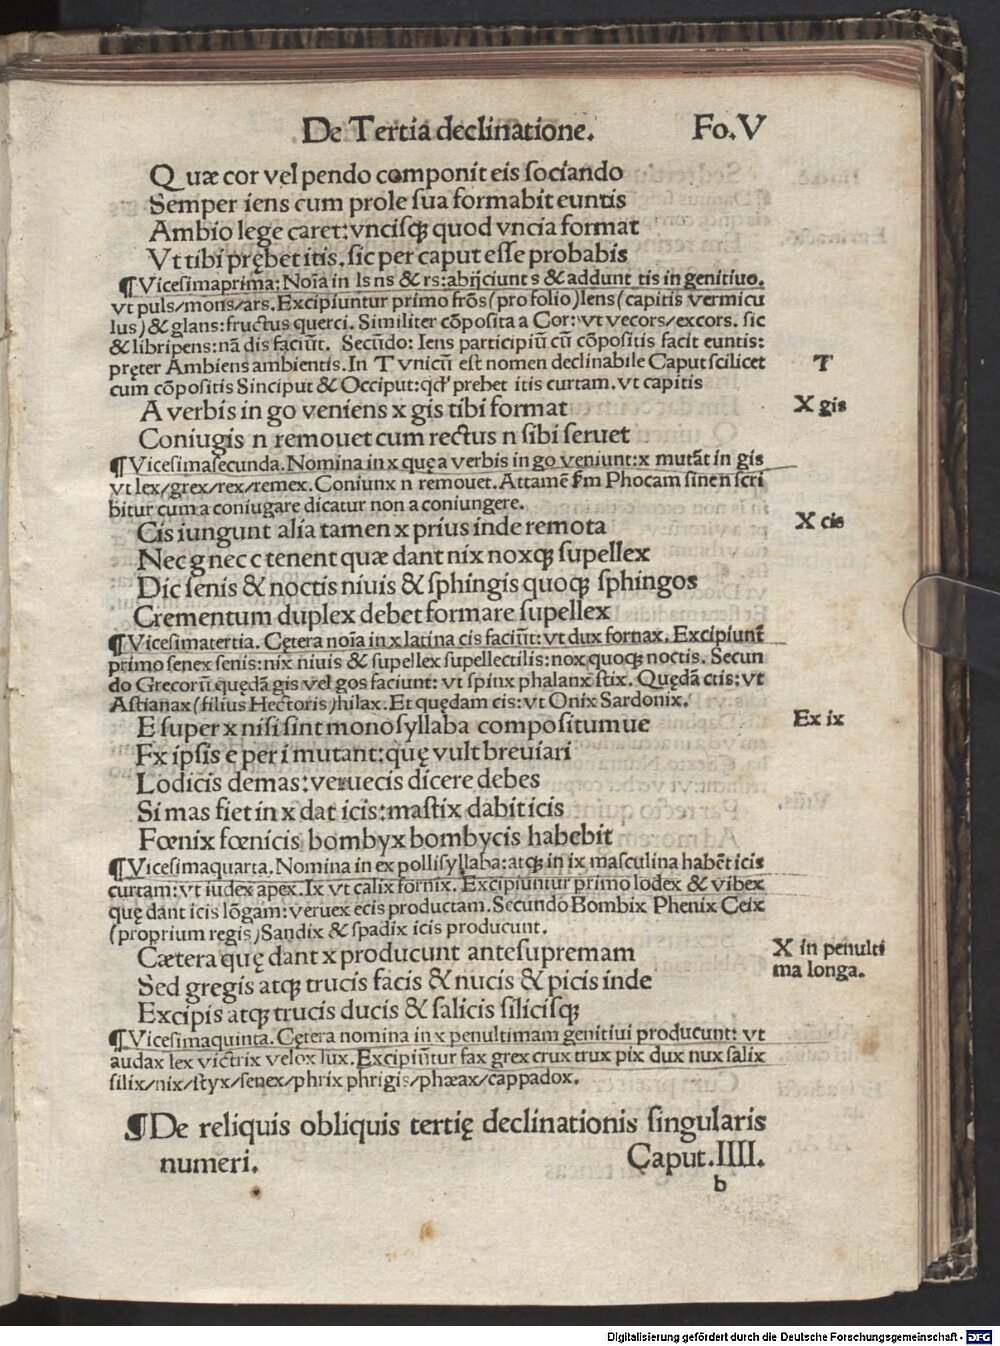 De Tertia declinatione. Fo.V
Quæ cor vel pendo componit eis sociando
Semper iens cum prole sua formabit euntis
Ambio lege caret: vncisqꝫ quod vncia format
Vt tibi prębet itis. sic per caput esse probabis
¶ Vicesimaprima: Noīa in ls ns & rs: abijciunt s & addunt tis in genitiuo.
vt puls/mons/ars. Excipiuntur primo frōs (pro folio) lens (capitis vermicu
lus) & glans: fructus querci. Similiter cōposita a Cor: vt vecors/excors. sic
& libripens: nā dis faciūt. Secūdo: Iens participiū cū cōpositis facit euntis:
pręter Ambiens ambientis. In T vnicū est nomen declinabile Caput scilicet
T
cum cōpositis Sinciput & Occiput: qđ prebet itis curtam. vt capitis
A verbis in go veniens x gis tibi format
X gis
Coniugis n remouet cum rectus n sibi seruet
¶ Vicesimasecunda. Nomina in x quę a verbis in go veniunt: x mutāt in gis
vt lex/grex/rex/remex. Coniunx n remouet. Attamē fm Phocam sine n scri
bitur cum a coniugare dicatur non a coniungere.
Cis iungunt alia tamen x prius inde remota
X cis
Nec g nec c tenent quæ dant nix noxqꝫ supellex
Dic senis & noctis niuis & sphingis quoqꝫ sphingos
Crementum duplex debet formare supellex
¶ Vicesimatertia. Cętera noīa in x latina cis faciūt: vt dux fornax. Excipiunt̄
primo senex senis: nix niuis & supellex supellectilis: nox quoqꝫ noctis. Secun
do Grecorū quędā gis vel gos faciunt: vt spinx phalanx stix. Quędā ctis: vt
Astianax (filius Hectoris) hilax. Et quędam cis: vt Onix Sardonix.
E super x nisi sint monosyllaba compositumue
Ex ix
Ex ipsis e per i mutant: quę vult breuiari
Lodicis demas: veruecis dicere debes
Si mas fiet in x dat icis: mastix dabit icis
Fœnix fœnicis bombyx bombycis habebit
¶ Vicesimaquarta. Nomina in ex pollisyllaba: atqꝫ in ix masculina habēt icis
curtam: vt iudex apex. Ix vt calix fornix. Excipiuntur primo lodex & vibex
quę dant icis lōgam: veruex ecis productam. Secundo Bombix Phenix Ceix
(proprium regis) Sandix & spadix icis producunt.
Cætera quę dant x producunt antesupremam
X in penulti
ma longa.
Sed gregis atqꝫ trucis facis & nucis & picis inde
Excipis atqꝫ trucis ducis & salicis silicisqꝫ
¶ Vicesimaquinta. Cętera nomina in x penultimam genitiui producunt: vt
audax lex victrix velox lux. Excipiūtur fax grex crux trux pix dux nux salix
silix/nix/styx/senex/phrix phrigis/phæax/cappadox.
¶ De reliquis obliquis tertię declinationis singularis
numeri. Caput.IIII.
b
Digitalisierung gefördert durch die Deutsche Forschungsgemeinschaft - DFG